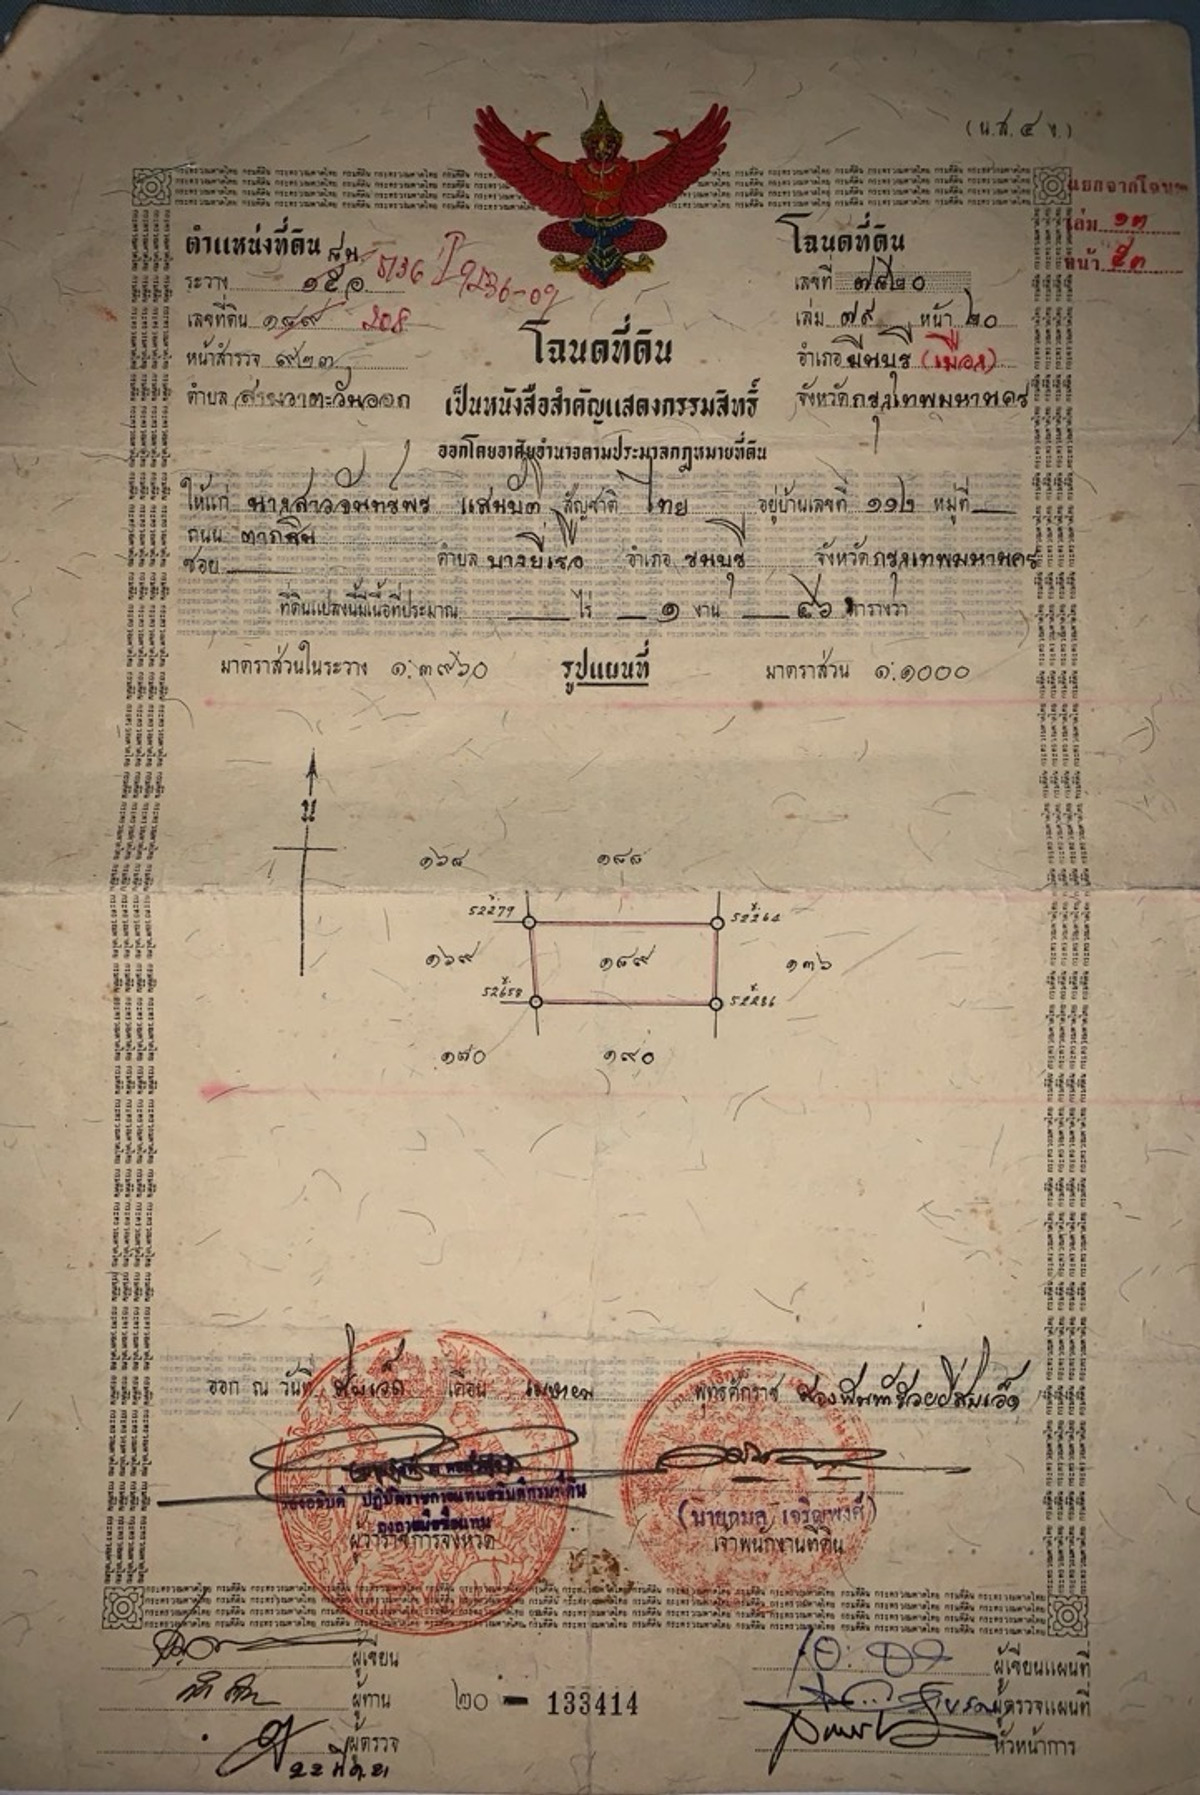 (น.ส.๔ ข.)
แยกจากโฉนด
เล่ม ๑๓
หน้า ๕๓
ตำแหน่งที่ดิน
ระวาง ๑๕๐ 5136 9136-09
เลขที่ดิน ๑๘๙ 208
หน้าสำรวจ ๙๒๓
ตำบล สามวาตะวันออก
โฉนดที่ดิน
เลขที่ ๗๘๒๐
เล่ม ๗๙ หน้า ๒๐
อำเภอ มีนบุรี (เมือง)
จังหวัด กรุงเทพมหานคร
โฉนดที่ดิน
เป็นหนังสือสำคัญแสดงกรรมสิทธิ์
ออกโดยอาศัยอำนาจตามประมวลกฎหมายที่ดิน
ให้แก่ นางสาวจันทร์พร แสนบัต สัญชาติ ไทย อยู่บ้านเลขที่ ๑๑๒ หมู่ที่
ถนน ตากสิน
ซอย ตำบล บางยี่เรือ อำเภอ ธนบุรี จังหวัด กรุงเทพมหานคร
ที่ดินแปลงนี้มีเนื้อที่ประมาณ ไร่ ๑ งาน ๕๖ ตารางวา
มาตราส่วนในระวาง ๑:๓๙๖๐ รูปแผนที่ มาตราส่วน ๑:๑๐๐๐
น
๑๖๘ ๑๘๘
52279 52264
๑๖๙ ๑๘๙ ๑๓๖
52658 52286
๑๗๐ ๑๙๐
ออก ณ วันที่ สิบเจ็ด เดือน เมษายน พุทธศักราช สองพันห้าร้อยยี่สิบเอ็ด
รองอธิบดี ปฏิบัติราชการแทนอธิบดีกรมที่ดิน
ผู้ว่าราชการจังหวัด
(นายถมล เจริญพงศ์)
เจ้าพนักงานที่ดิน
ผู้เขียน ผู้เขียนแผนที่
ผู้ทาน ๒๐ - 133414 ผู้ตรวจแผนที่
ผู้ตรวจ หัวหน้าการ
๒๒ มี.ค. ๒๑